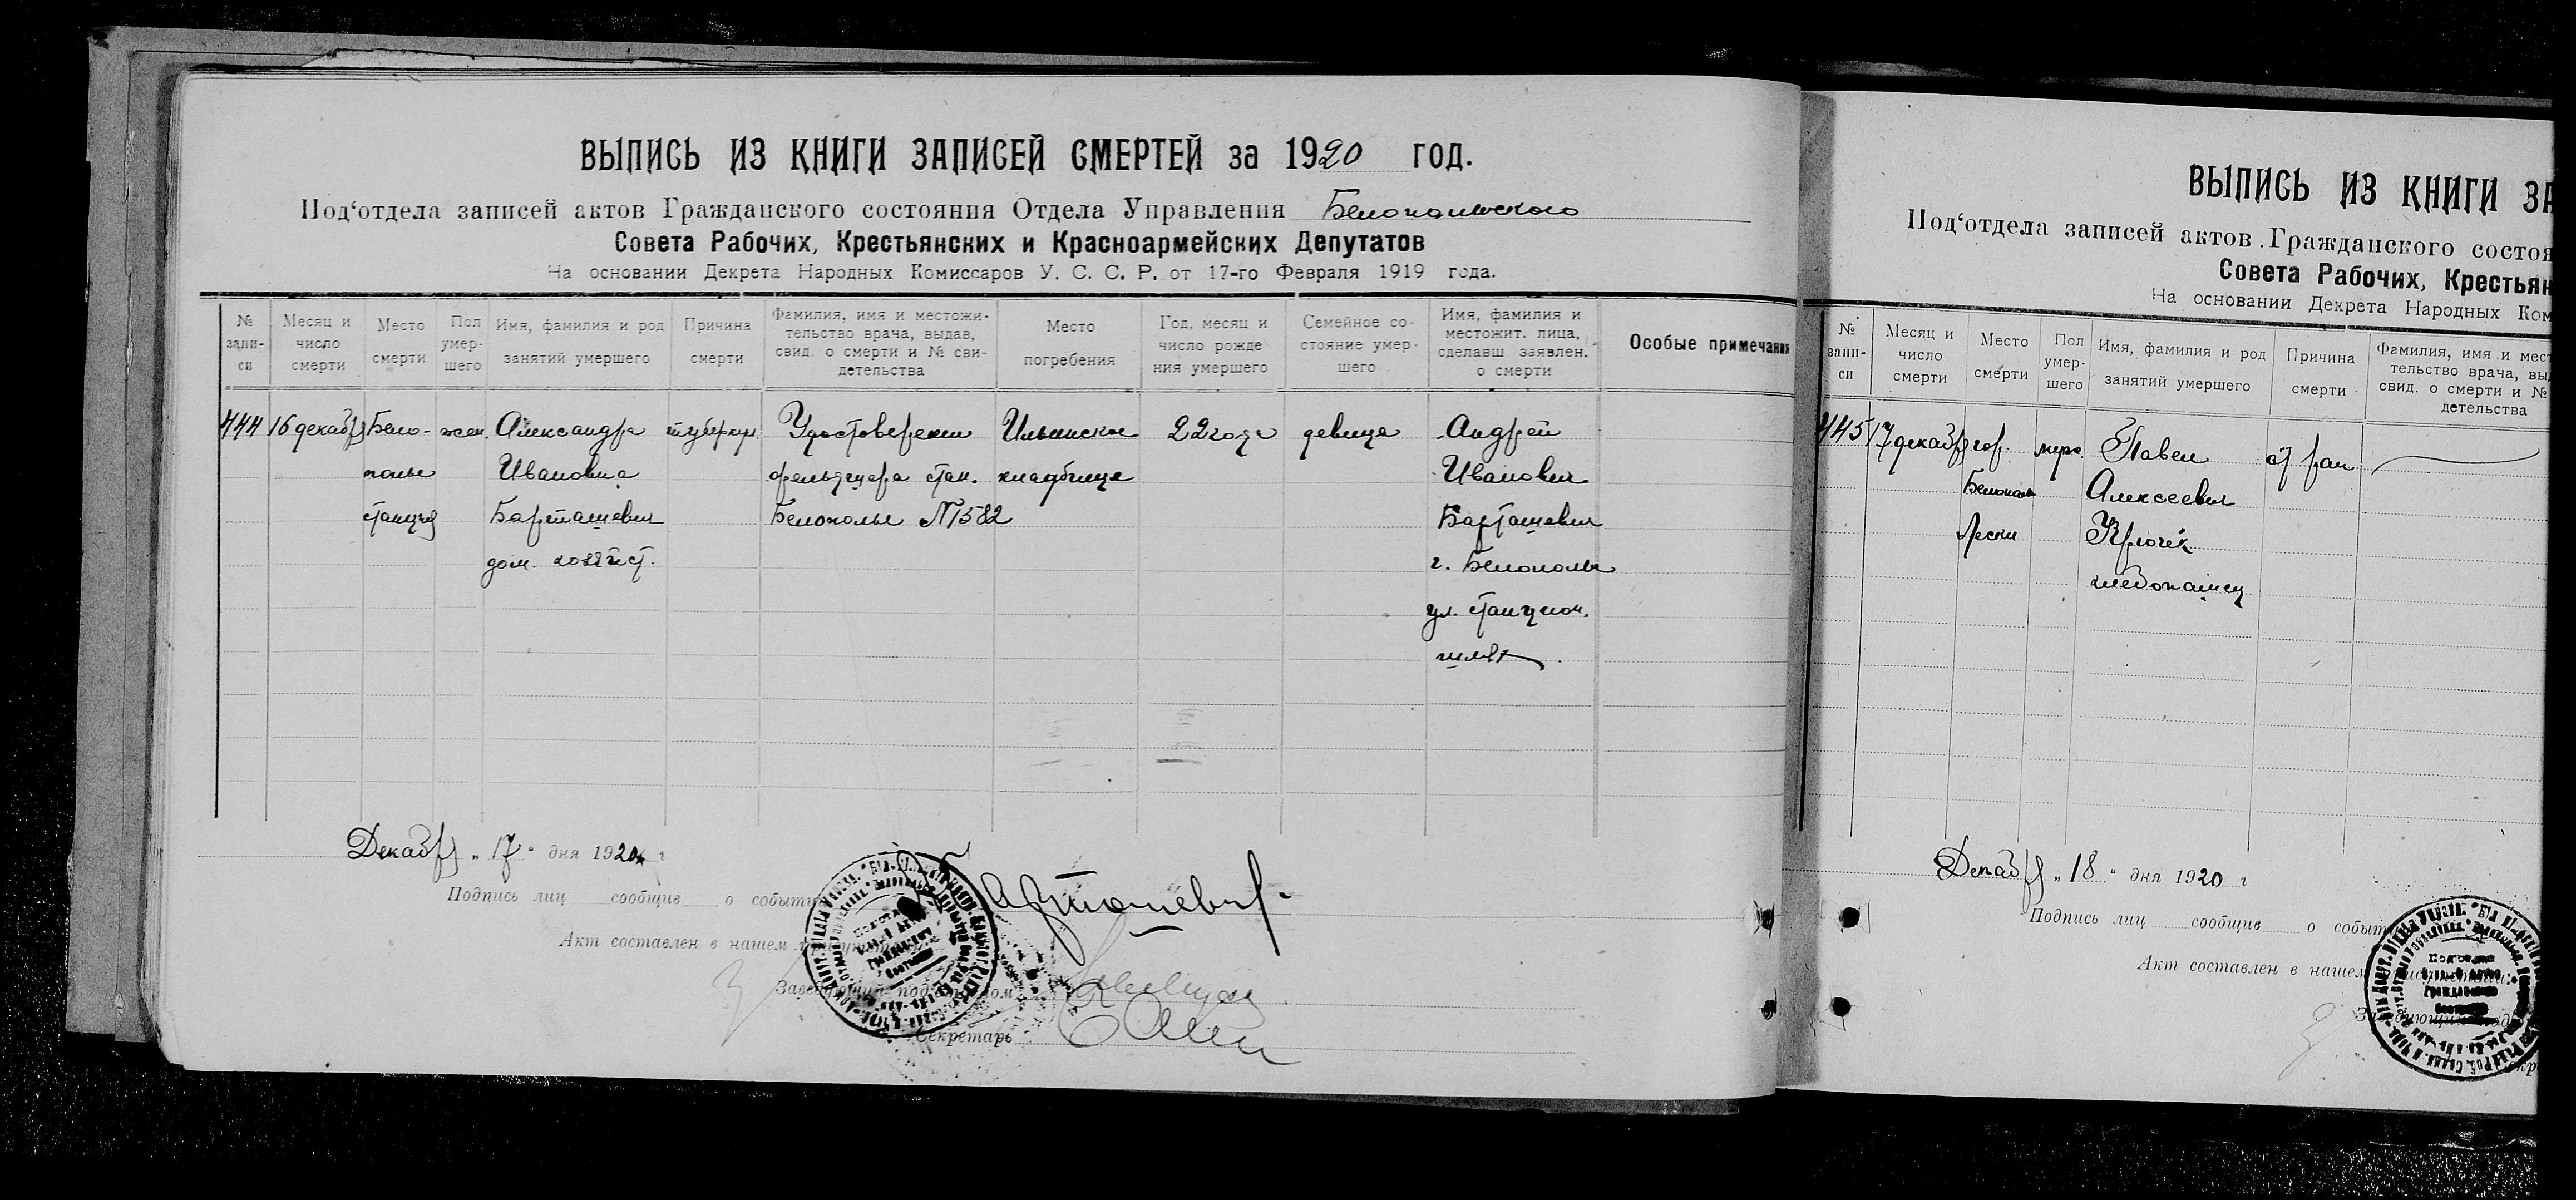 ВЫПИСЬ ИЗ КНИГИ ЗАПИСЕЙ СМЕРТЕЙ за 1920 год.
Под‘отдела записей актов Гражданского состояния Отдела Управления Белопольского
Совета Рабочих, Крестьянских и Красноармейских Депутатов
На основании Декрета Народных Комиссаров У. С. С. Р. от 17-го Февраля 1919 года.
№ запи-си
Месяц и число смерти
Место смерти
Пол умер-шего
Имя, фамилия и род занятий умершего
Причина смерти
Фамилия, имя и местожи-тельство врача, выдав, свид. о смерти и № сви-детельства
Место погребения
Год, месяц и число рожде ния умершего
Семейное со-стояние умер-шего
Имя, фамилия и местожит. лица, сделавш. заявлен. о смерти
Особые примечания
444
16 декабря
Бело-
полье
станция
жен.
Александра
Ивановна
Барташевич
дом. хозяйст.
туберкул.
Удостоверение
фельдшера стан.
Белополье №1582
Ильинское
кладбище
22 года
девица
Андрей
Иванович
Барташевич
г. Белополье
ул. станцион.
шлях
Декабря „17“ дня 1920 г
Подпись лиц сообщив о событи
Акт составлен в нашем
Заведующий под
Секретарь
ВЫПИСЬ ИЗ КНИГИ ЗА
Под‘отдела записей актов Гражданского состоя
Совета Рабочих, Крестьян
На основании Декрета Народных Ком
№ запи-си
Месяц и число смерти
Место смерти
Пол умер-шего
Имя, фамилия и род занятий умершего
Причина смерти
Фамилия, имя и мест
тельство врача, вы
свид. о смерти и №
детельства
445
17 декабря
гор.
Белополь
Пески
муж.
Павел
Алексеевич
Крючек
хлебопашец
от ран
Декабря „18“ дня 1920 г
Подпись лиц сообщив о событ
Акт составлен в нашем